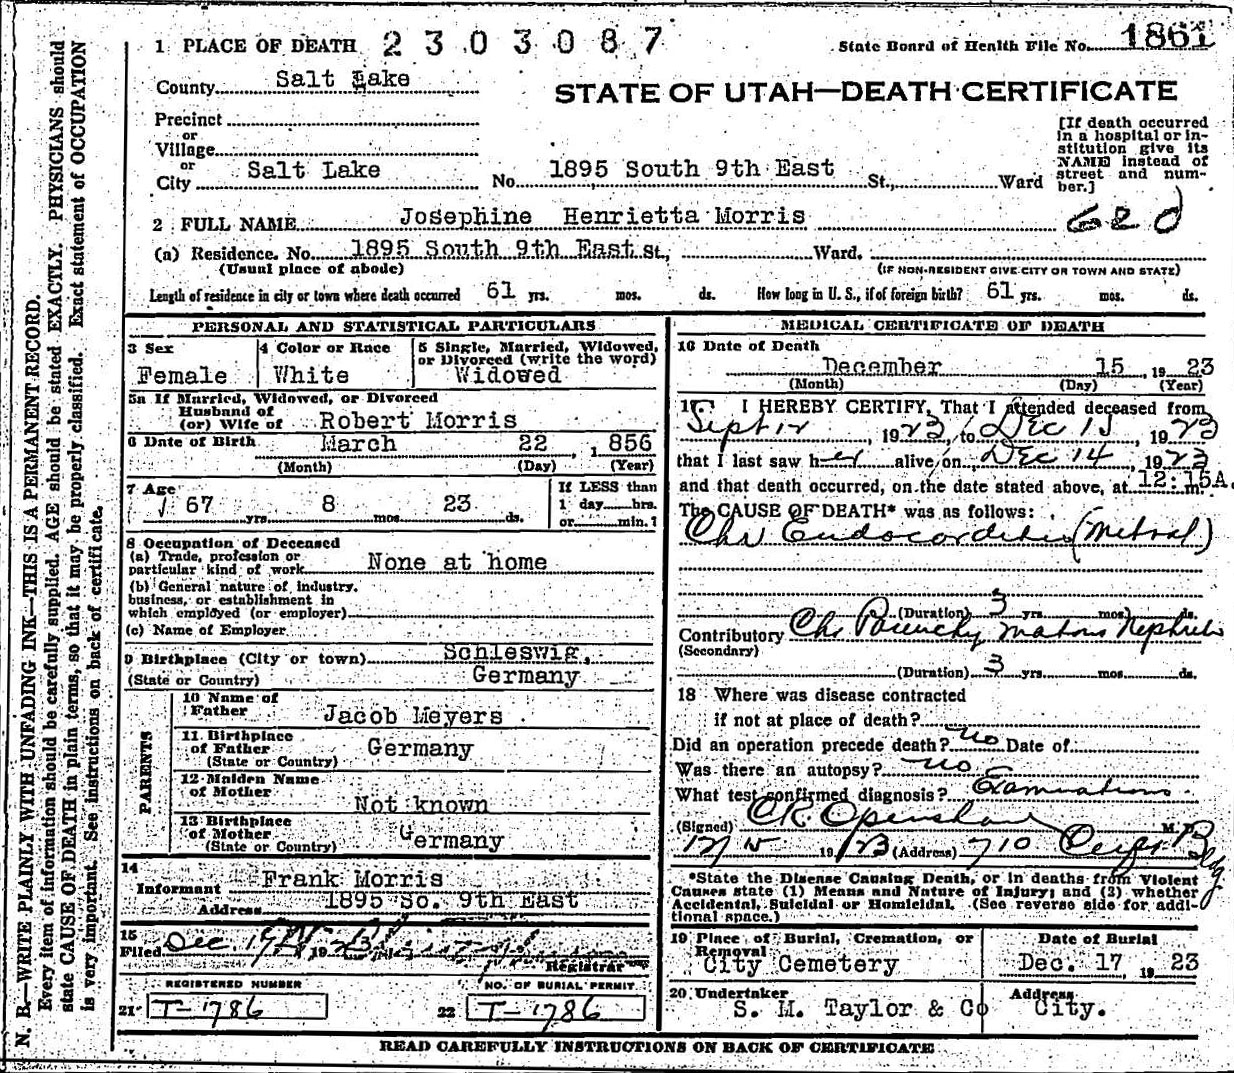 1 PLACE OF DEATH 2303087
State Board of Health File No. 1861
County Salt Lake
STATE OF UTAH—DEATH CERTIFICATE
Precinct
or
Village
or
City Salt Lake No. 1895 South 9th East St., Ward
[If death occurred
in a hospital or in-
stitution give its
NAME instead of
street and num-
ber.]
2 FULL NAME Josephine Henrietta Morris
620
(a) Residence. No. 1895 South 9th East St., Ward.
(Usual place of abode) (IF NON-RESIDENT GIVE CITY OR TOWN AND STATE)
Length of residence in city or town where death occurred 61 yrs. mos. ds. How long in U. S., if of foreign birth? 61 yrs. mos. ds.
PERSONAL AND STATISTICAL PARTICULARS
3 Sex
Female
4 Color or Race
White
5 Single, Married, Widowed,
or Divorced (write the word)
Widowed
5a If Married, Widowed, or Divorced
Husband of
(or) Wife of Robert Morris
6 Date of Birth March 22, 1856
(Month) (Day) (Year)
7 Age
67 yrs. 8 mos. 23 ds.
If LESS than
1 day hrs.
or min.?
8 Occupation of Deceased
(a) Trade, profession or
particular kind of work None at home
(b) General nature of industry,
business, or establishment in
which employed (or employer)
(c) Name of Employer
9 Birthplace (City or town) Schleswig,
(State or Country) Germany
PARENTS
10 Name of
Father Jacob Meyers
11 Birthplace
of Father Germany
(State or Country)
12 Maiden Name
of Mother
Not known
13 Birthplace
of Mother Germany
(State or Country)
14
Informant Frank Morris
Address 1895 So. 9th East
15
Filed Dec. 19 23
Registrar
REGISTERED NUMBER
21 T-1786
NO. OF BURIAL PERMIT
22 T-1786
MEDICAL CERTIFICATE OF DEATH
16 Date of Death
December 15, 1923
(Month) (Day) (Year)
17. I HEREBY CERTIFY, That I attended deceased from
Sept 12, 1923, to Dec 15, 1923
that I last saw her alive on Dec 14, 1923
and that death occurred, on the date stated above, at 12:15A.m.
The CAUSE OF DEATH* was as follows:
Chr Endocarditis (Mitral)
(Duration) 3 yrs. mos. ds.
Contributory Chr Parenchymatous Nephritis
(Secondary)
(Duration) 3 yrs. mos. ds.
18 Where was disease contracted
if not at place of death?
Did an operation precede death? no Date of
Was there an autopsy? no
What test confirmed diagnosis? Examinations
(Signed) C R Openshaw M.D.
12/15 1923 (Address) 710 Bldg
*State the Disease Causing Death, or in deaths from Violent
Causes state (1) Means and Nature of Injury; and (2) whether
Accidental, Suicidal or Homicidal. (See reverse side for addi-
tional space.)
19 Place of Burial, Cremation, or
Removal
City Cemetery
Date of Burial
Dec. 17, 1923
20 Undertaker
S. M. Taylor & Co
Address
City.
READ CAREFULLY INSTRUCTIONS ON BACK OF CERTIFICATE
N. B.—WRITE PLAINLY WITH UNFADING INK—THIS IS A PERMANENT RECORD.
Every item of information should be carefully supplied. AGE should be stated EXACTLY. PHYSICIANS should
state CAUSE OF DEATH in plain terms, so that it may be properly classified. Exact statement of OCCUPATION
is very important. See instructions on back of certificate.